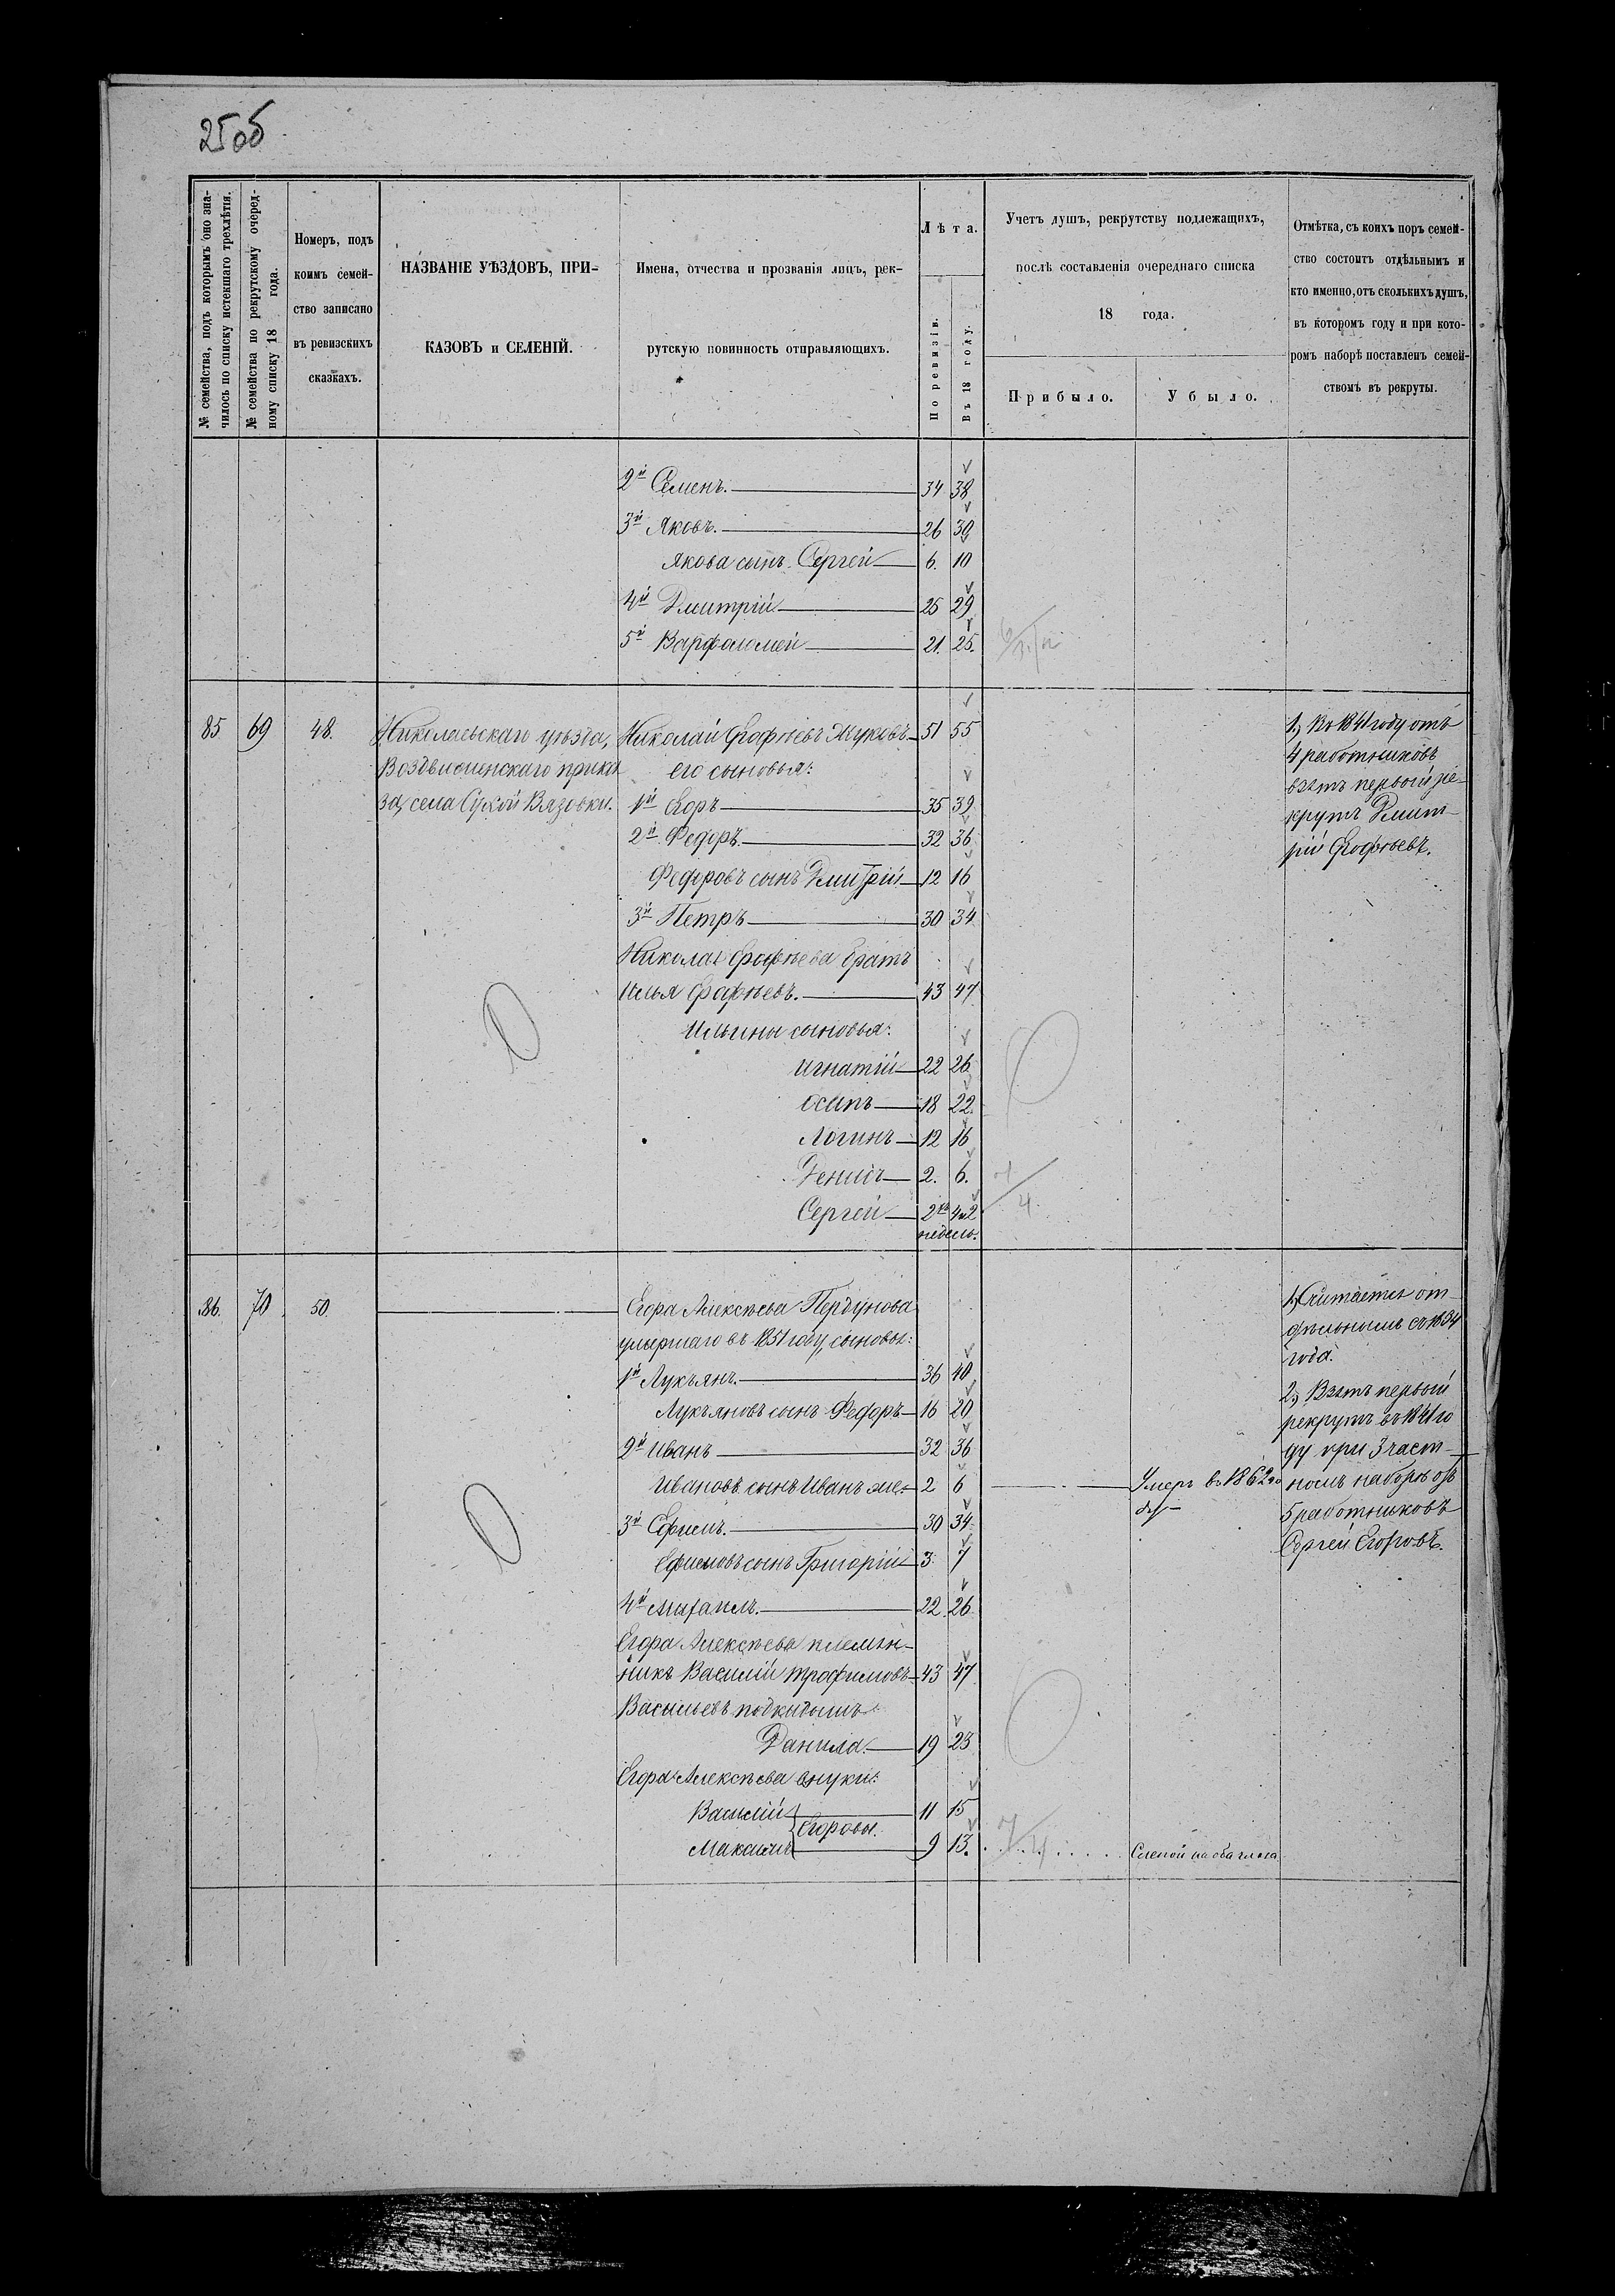 25об
№ семейства, подъ которымъ оно зна-
чилось по списку истекшаго трехлѣтія.
№ семейства по рекрутскому очеред-
ному списку 18 года.
Номеръ, подъ
коимъ семей-
ство записано
въ ревизскихъ
сказкахъ.
НАЗВАНІЕ УѢЗДОВЪ, ПРИ-
КАЗОВЪ и СЕЛЕНІЙ.
Имена, отчества и прозванія лицъ, рек-
рутскую повинность отправляющихъ.
Лѣта.
По ревизіи.
Въ 18 году.
Учетъ душъ, рекрутству подлежащихъ,
послѣ составленія очереднаго списка
18 года.
Прибыло.
Убыло.
Отмѣтка, съ коихъ поръ семей-
ство состоитъ отдѣльнымъ и
кто именно, отъ сколькихъ душъ,
въ которомъ году и при кото-
ромъ наборѣ поставленъ семей-
ствомъ въ рекруты.
2й Семенъ. 34 38
3й Яковъ. 26 30
Якова сынъ Сергей 6. 10
4й Дмитрій 25 29
5й Варфоломей 21. 25.
85 69 48. Николаевскаго уѣзда, Николай Ерофѣевъ Жуковъ 51 55
Воздвиженскаго прика
за, села Сухой Вязовки.
его сыновья:
1й Егоръ 35 39
2й Федоръ 32 36
Федоровъ сынъ Дмитрій 12 16
3й Петръ 30 34
Николая Ерофѣева братъ
Илья Ерофѣевъ. 43 47
Ильины сыновья:
Игнатій 22 26
Осипъ 18 22.
Логинъ 12 16
Денисъ 2. 6.
Сергей 2хъ 4 и 2
недель.
1, Въ 1841 году отъ
4 работниковъ
взятъ первый ре-
крутъ Дмит-
рій Ерофѣевъ.
86. 70 50. Егора Алексѣева Перчунова
умершаго въ 1851 году, сыновья:
1й Лукъянъ. 36 40
Лукъяновъ сынъ Федоръ 16 20
2й Иванъ 32 36
Ивановъ сынъ Иванъ же 2 6 Умеръ въ 1862 го
ду
3й Ефимъ. 30 34
Ефимовъ сынъ Григорій 3 7
4й Михаилъ. 22 26
Егора Алексѣева племян-
никъ Василій Трофимовъ 43 47
Васильевъ подкидышъ
Данила. 19 23
Егора Алексѣева внуки:
Василій 11 15
Егоровы.
Максимъ 9 13. Слепой на оба глаза
1, Считается от
дѣльнымъ съ 1834
года.
2, Взятъ первый
рекрутъ въ 1841 го
ду при 3 част-
номъ наборѣ отъ
5 работниковъ
Сергей Егоровъ.